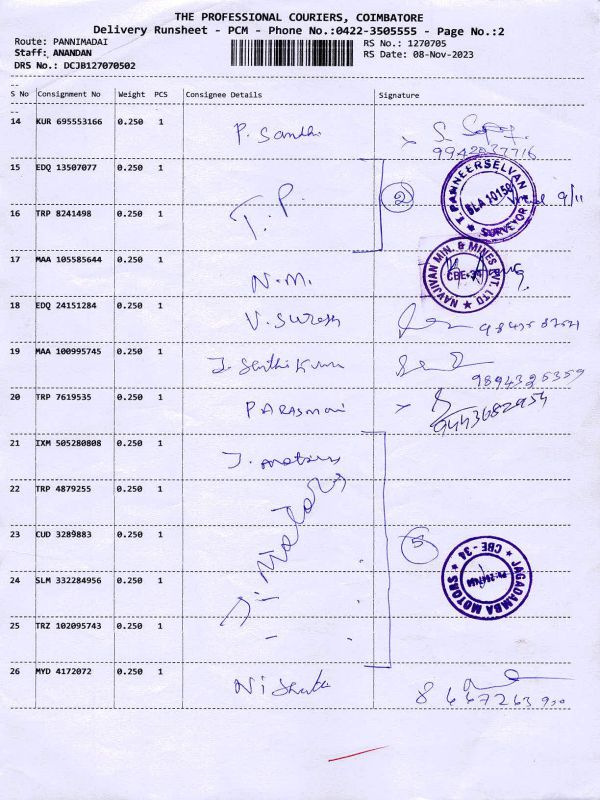 THE PROFESSIONAL COURIERS, COIMBATORE
Delivery Runsheet - PCM - Phone No.:0422-3505555 - Page No.:2
Route: PANNIMADAI
RS No.: 1270705
Staff: ANANDAN
RS Date: 08-Nov-2023
DRS No.: DCJB127070502
S No Consignment No Weight PCS Consignee Details Signature
14 KUR 695553166 0.250 1 P. Sandhi
15 EDQ 13507077 0.250 1
T. PANNEERSELVAN SURVEYOR
SLA 10150
9/11
16 TRP 8241498 0.250 1 T. P. 2
17 MAA 105585644 0.250 1 N.M.
NAVJIVAN MIN. & MINES PVT. LTD
CBE-34
18 EDQ 24151284 0.250 1 V. Suresh
19 MAA 100995745 0.250 1
9894325359
20 TRP 7619535 0.250 1 PARASMANI
9443682954
21 IXM 505280808 0.250 1 J. motors
22 TRP 4879255 0.250 1
23 CUD 3289883 0.250 1 J. Motors 5
JAGADAMBA MOTORS
CBE - 34
24 SLM 332284956 0.250 1
25 TRZ 102095743 0.250 1
26 MYD 4172072 0.250 1